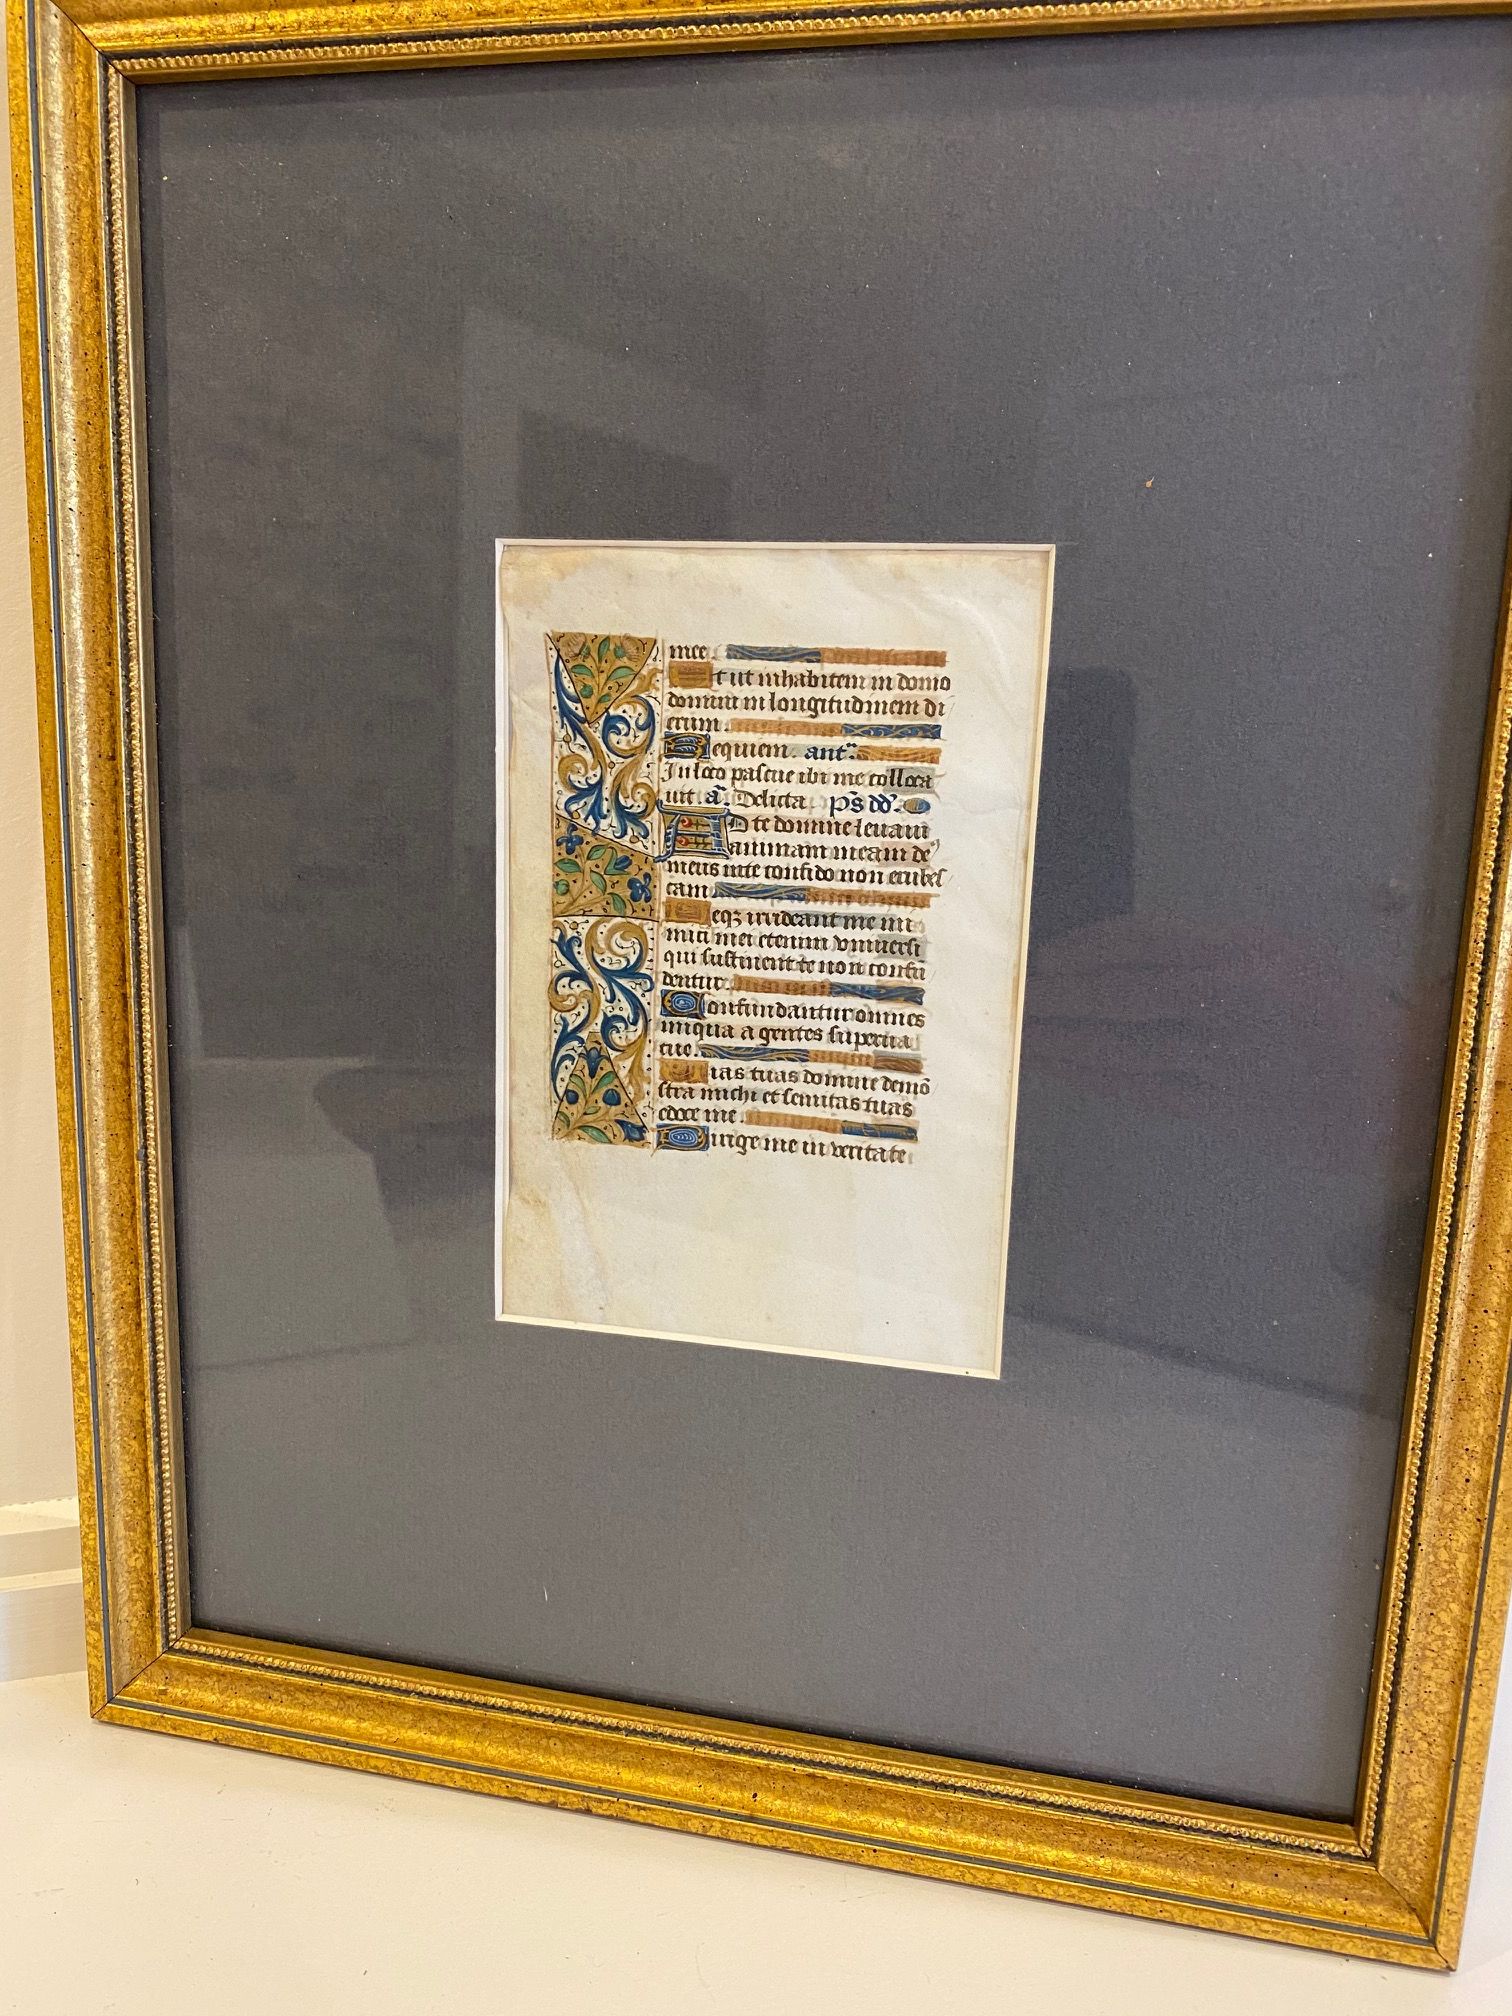 mee.
Et ut inhabitem in domo
domini in longitudinem di
erum.
Requiem. ant.̃
In loco pascue ibi me colloca
uit. a᷉. Delicta p̃s dd̃.
AD te domine leuaui
animam meam de
meus in te confido non erubes
cam
Neqꝫ irrideant me ini
mici mei etenim vniuersi
qui sustinent te non confu
dentur.
Confundantur omnes
iniqua agentes superua
cue.
Vias tuas domine demõ
stra michi et semitas tuas
edoce me.
Dirige me in veritate